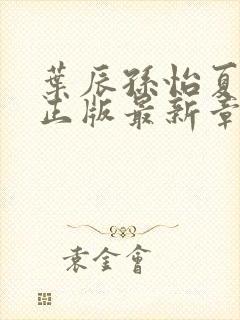 葉辰孫怡夏
正版最新章
袁金會